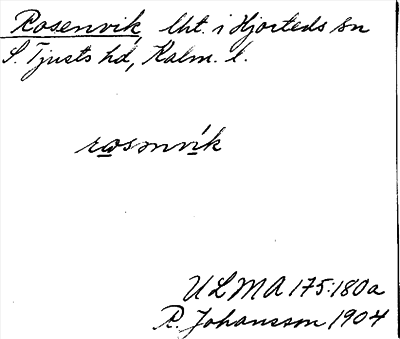 Rosenvik, lht. i Hjorteds sn
S. Tjusts hd, Kalm. l.
rosmvik
ULMA 175:180a
R. Johansson 1904